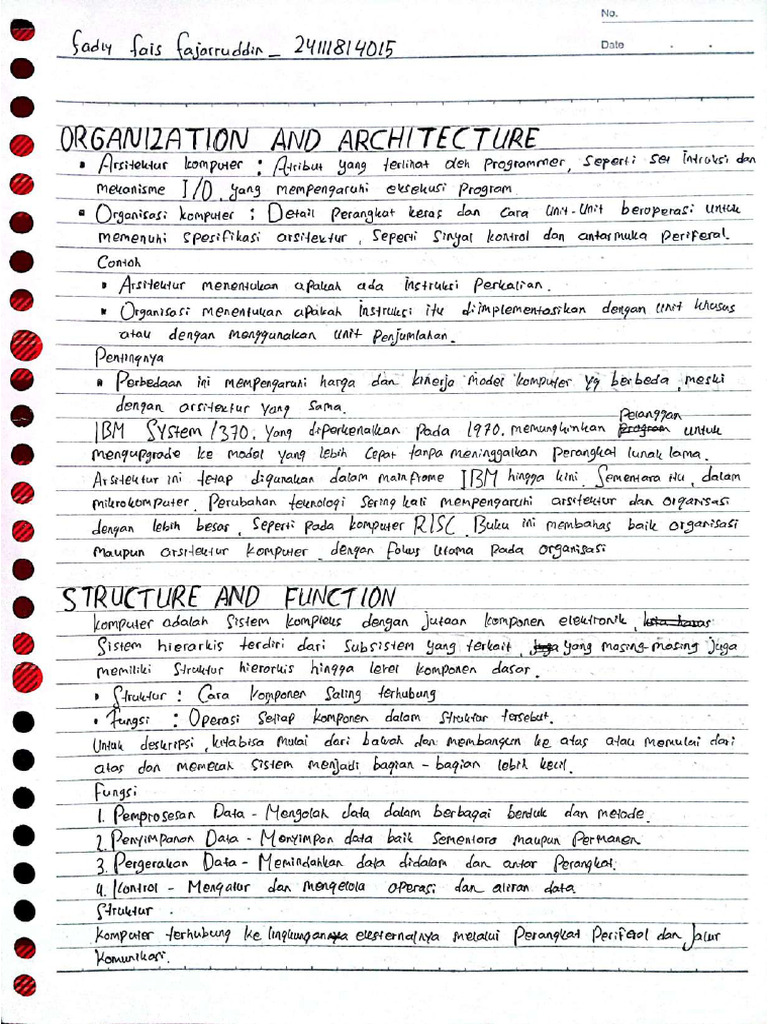 No.
Fadly Fais Fajarruddin_ 24111814015
Date
ORGANIZATION AND ARCHITECTURE
▪ Arsitektur komputer : Atribut yang terlihat oleh Programmer, Seperti Set Intruksi dan
mekanisme I/O, yang mempengaruhi eksekusi Program.
▪ Organisasi komputer : Detail Perangkat keras dan Cara Unit-Unit beroperasi Untuk
memenuhi Spesifikasi arsitektur, Seperti Sinyal kontrol dan antarmuka Periferal.
Contoh
▪ Arsitektur menentukan apakah ada Instruksi Perkalian.
▪ Organisasi menentukan apakah Instruksi itu diimplementasikan dengan Unit khusus
atau dengan menggunakan Unit Penjumlahan.
Pentingnya
▪ Perbedaan ini mempengaruhi harga dan kinerja model komputer yg berbeda, meski
dengan arsitektur yang Sama.
Pelanggan
IBM System/370. Yang diperkenalkan Pada 1970. memungkinkan Program untuk
mengupgrade ke model yang lebih Cepat tanpa meninggalkan Perangkat lunak lama.
Arsitektur ini tetap digunakan dalam mainframe IBM hingga kini. Sementara itu, dalam
mikrokomputer, Perubahan teknologi Sering kali mempengaruhi arsitektur dan organisasi
dengan lebih besar, Seperti Pada komputer RISC. Buku ini membahas baik organisasi
maupun arsitektur komputer, dengan fokus Utama Pada organisasi
STRUCTURE AND FUNCTION
Komputer adalah Sistem kompleks dengan jutaan komponen elektronik,
Sistem hierarkis terdiri dari Subsistem yang terkait, juga yang masing-masing juga
memiliki Struktur hierarkis hingga level komponen dasar.
• Struktur : Cara komponen Saling terhubung
• Fungsi : Operasi Setiap komponen dalam Struktur tersebut.
Untuk deskripsi, kitabisa mulai dari bawah dan membangun ke atas atau memulai dari
atas dan memecah sistem menjadi bagian-bagian lebih kecil.
Fungsi
1. Pemprosesan Data - Mengolah data dalam berbagai bentuk dan metode.
2. Penyimpanan Data - Menyimpan data baik Sementara maupun Permanen
3. Pergerakan Data - Memindahkan data didalam dan antar Perangkat.
4. Kontrol - Mengatur dan mengelola operasi dan aliran data.
Struktur
Komputer terhubung ke lingkungannya eksternalnya melalui Perangkat Periferal dan Jalur
komunikasi.